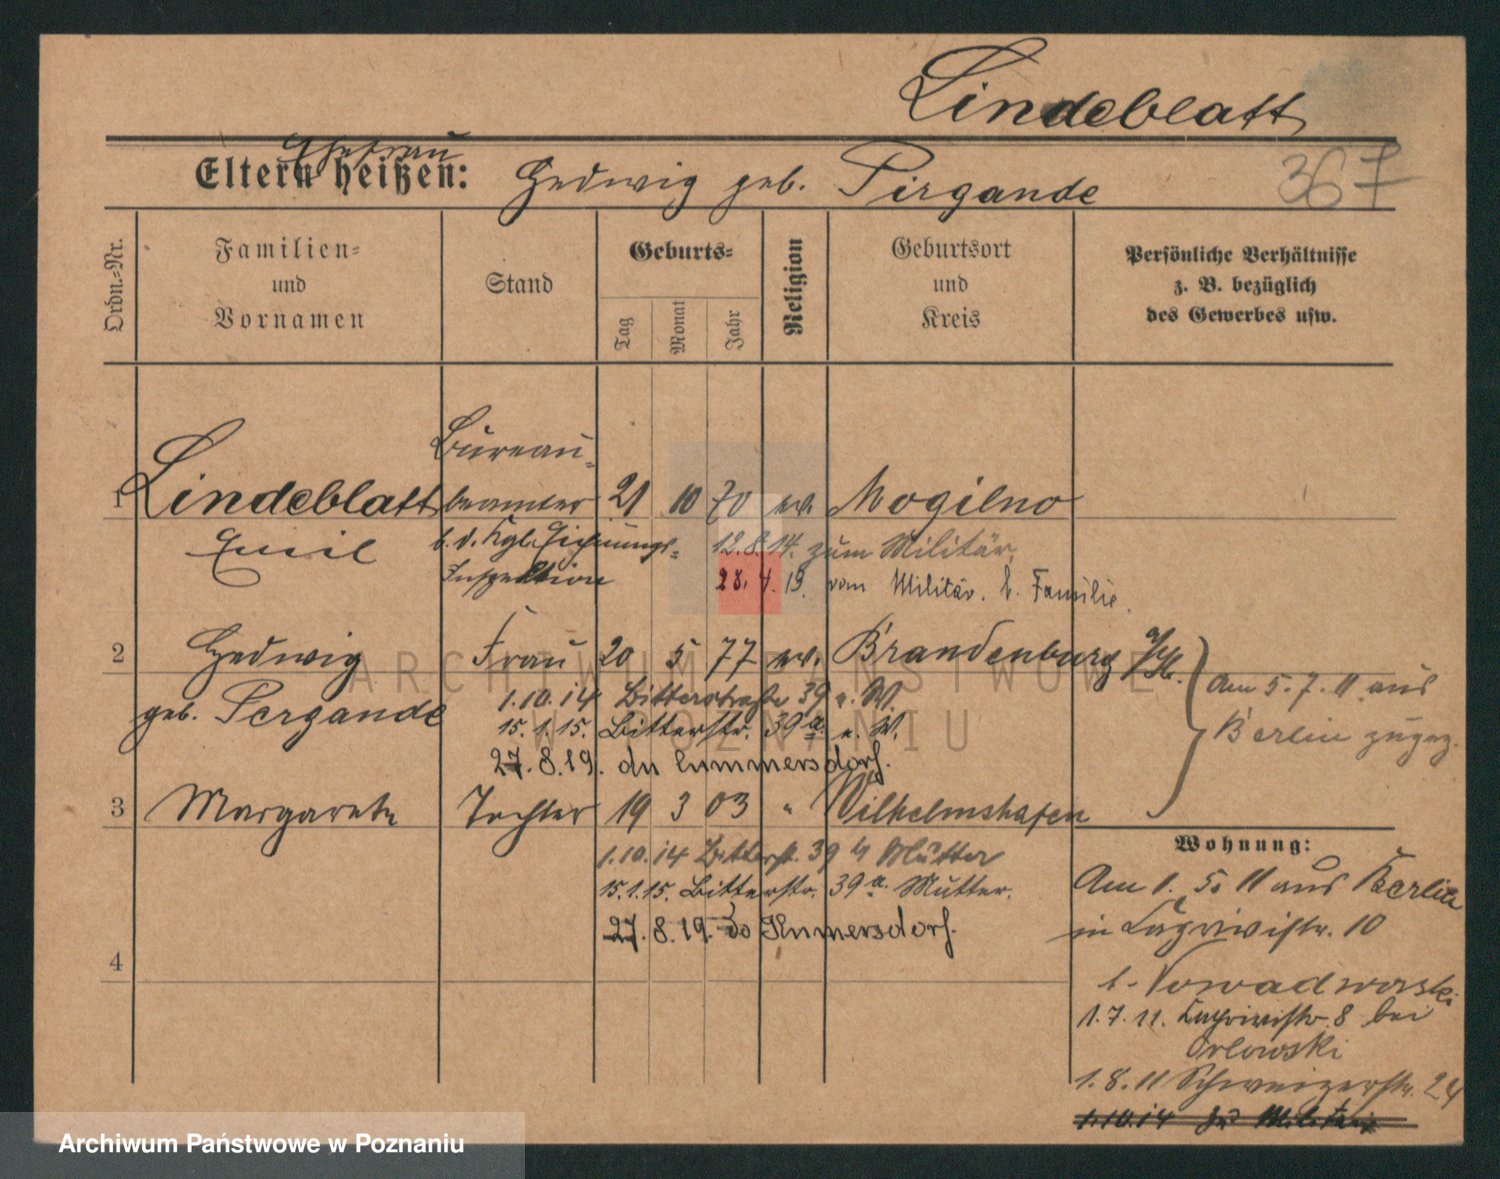 Lindeblatt
Ehefrau
Eltern heißen: Hedwig geb. Pirgande
367
Ordn.-Nr.
Familien-
und
Vornamen
Stand
Geburts-
Tag
Monat
Jahr
Religion
Geburtsort
und
Kreis
Persönliche Verhältnisse
z. B. bezüglich
des Gewerbes usw.
Bureau-
1 Lindeblatt beamter 21 10 70 ev. Mogilno
Emil b. d. Kgl. Eichungs- 12.8.14. zum Militär
Inspektion 28.4.19. vom Militär. b. Familie.
2 Hedwig Frau 20 5 77 ev. Brandenburg a/H.
geb. Pergande 1.10.14 Bitterstraße 39 e. W.
15.1.15. Bitterstr. 39a e. W.
27.8.19. Emmersdorf.
Am 5.7.11 aus
Berlin zugez.
3 Margarete Tochter 19 3 03 " Wilhelmshafen
1.10.14 Bitterstr. 39 b Mutter
15.1.15. Bitterstr. 39a. Mutter.
27.8.19. do
4
Wohnung:
Am 1. 5. 11 aus Berlin
in 10
b. Nowadworski
1.7.11. 8 bei
Orlowski
1.8.11 Schweizerstr. 24
1.10.14 zu Militär
ARCHIWUM PAŃSTWOWE
W POZNANIU
Archiwum Państwowe w Poznaniu